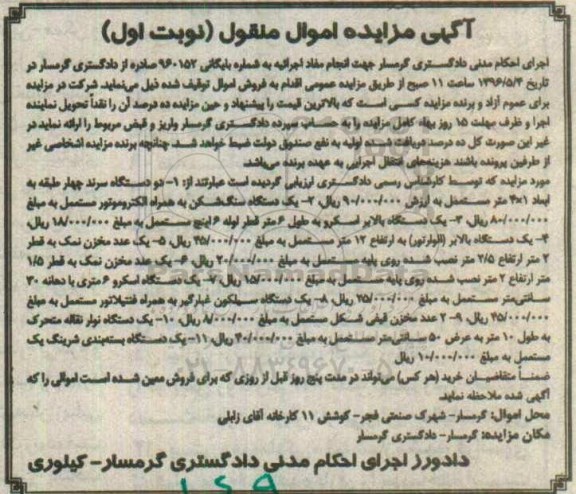 آگهی مزایده اموال منقول (نوبت اول)
اجرای احکام مدنی دادگستری گرمسار جهت انجام مفاد اجرائیه به شماره بایگانی ۹۶۰۱۵۲ صادره از دادگستری گرمسار در
تاریخ ۱۳۹۶/۵/۴ ساعت ۱۱ صبح از طریق مزایده عمومی اقدام به فروش اموال توقیف شده ذیل می‌نماید. شرکت در مزایده
برای عموم آزاد و برنده مزایده کسی است که بالاترین قیمت را پیشنهاد و حین مزایده ده درصد آن را نقداً تحویل نماینده
اجرا و ظرف مهلت ۱۵ روز بهاء کامل مزایده را به حساب سپرده دادگستری گرمسار واریز و قبض مربوط را ارائه نماید در
غیر این صورت کل ده درصد دریافت شده اولیه به نفع صندوق دولت ضبط خواهد شد. چنانچه برنده مزایده اشخاصی غیر
از طرفین پرونده باشند هزینه‌های انتقال اجرایی به عهده برنده می‌باشد.
مورد مزایده که توسط کارشناس رسمی دادگستری ارزیابی گردیده است عبارتند از: ۱- دو دستگاه سرند چهار طبقه به
ابعاد ۴×۱ متر مستعمل به ارزش ۹۰/۰۰۰/۰۰۰ ریال، ۲- یک دستگاه سنگ‌شکن به همراه الکتروموتور مستعمل به مبلغ
۸۰/۰۰۰/۰۰۰ ریال، ۳- یک دستگاه بالابر اسکرو به طول ۶ متر قطر لوله ۶ اینچ مستعمل به مبلغ ۱۸/۰۰۰/۰۰۰ ریال،
۴- یک دستگاه بالابر (الواتور) به ارتفاع ۱۲ متر مستعمل به مبلغ ۴۵/۰۰۰/۰۰۰ ریال، ۵- یک عدد مخزن نمک به قطر
۲ متر ارتفاع ۲/۵ متر نصب شده روی پایه مستعمل به مبلغ ۲۰/۰۰۰/۰۰۰ ریال، ۶- یک عدد مخزن نمک به قطر ۱/۵
متر ارتفاع ۲ متر نصب شده روی پایه مستعمل به مبلغ ۱۵/۰۰۰/۰۰۰ ریال، ۷- یک دستگاه اسکرو ۶ متری با دهانه ۳۰
سانتی‌متر مستعمل به مبلغ ۲۵/۰۰۰/۰۰۰ ریال، ۸- یک دستگاه سیلکون غبارگیر به همراه فنتیلاتور مستعمل به مبلغ
۴۵/۰۰۰/۰۰۰ ریال، ۹- ۲ عدد مخزن قیفی شکل مستعمل به مبلغ ۸/۰۰۰/۰۰۰ ریال، ۱۰- یک دستگاه نوار نقاله متحرک
به طول ۱۰ متر به عرض ۵۰ سانتی‌متر مستعمل به مبلغ ۴۰/۰۰۰/۰۰۰ ریال، ۱۱- یک دستگاه بسته‌بندی شرینگ پک
مستعمل به مبلغ ۱۰/۰۰۰/۰۰۰ ریال
ضمناً متقاضیان خرید (هر کس) می‌تواند در مدت پنج روز قبل از روزی که برای فروش معین شده است اموالی را که
آگهی شده ملاحظه نماید.
محل اموال: گرمسار- شهرک صنعتی فجر- کوشش ۱۱ کارخانه آقای زابلی
مکان مزایده: گرمسار- دادگستری گرمسار
دادورز اجرای احکام مدنی دادگستری گرمسار- کیلوری